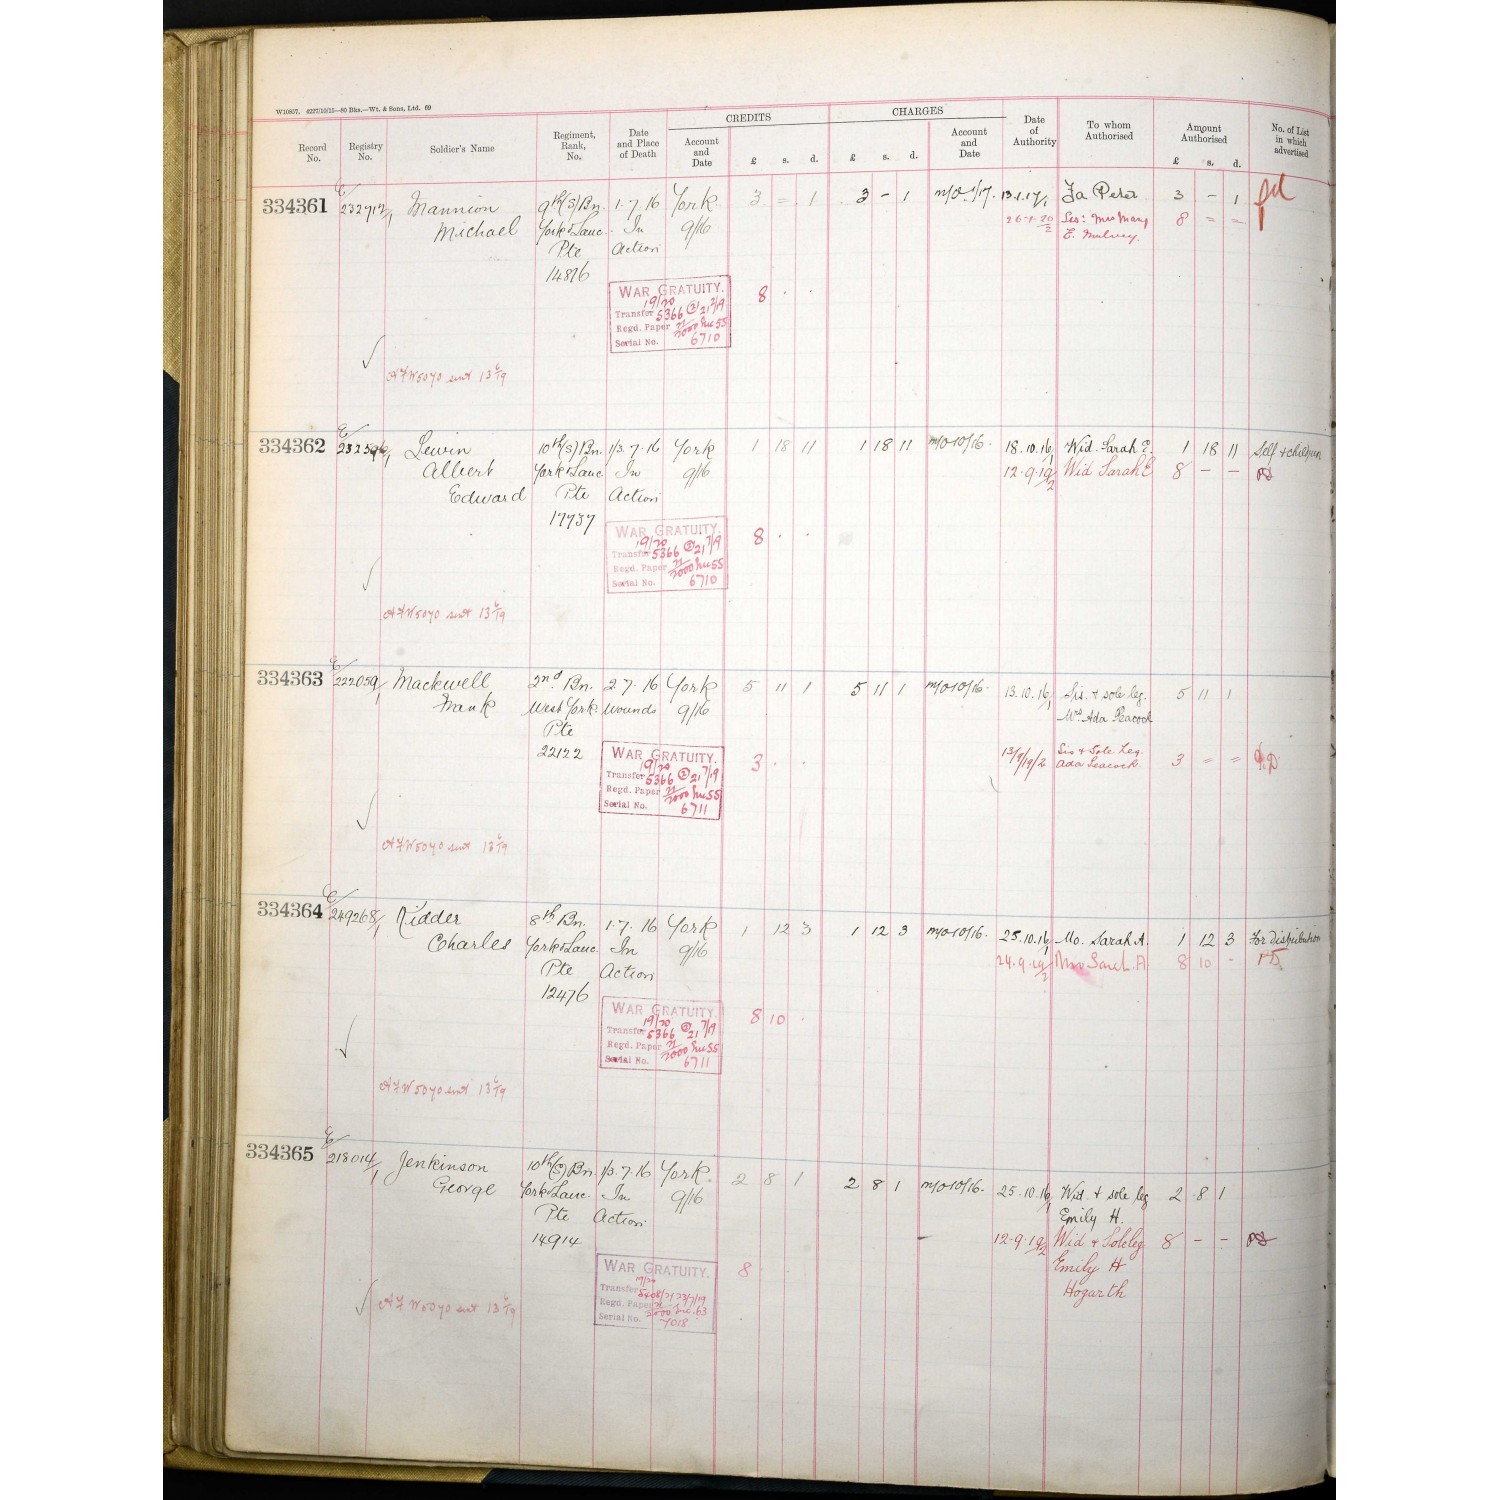 W10857. 4227/10/15—60 Bks.—Wt. & Sons, Ltd. 69
CREDITS CHARGES
Record No. Registry No. Soldier's Name Regiment, Rank, No. Date and Place of Death Account and Date £ s. d. £ s. d. Account and Date Date of Authority To whom Authorised Amount Authorised £ s. d. No. of List in which advertised
334361 E/ 232912/1 Mannion 9th (S) Bn. 1.7.16 York 3 = 1 3 - 1 m/o 1/17. 13.1.17/1 Fa Peter 3 - 1
Michael York & Lanc. In 9/16 26-1-20/2 Sis: Mrs Mary 8 = =
Pte Action E. Mulvey.
14876
WAR GRATUITY. 8 . .
19/20
Transfer 5366 (2) 21 7/19
Regd. Paper 21/2000 Inc 55
Serial No. 6710
AFW5070 sent 13 6/19
334362 E/ 232596/1 Lewin 10th (S) Bn. 1/3.7.16 York 1 18 11 1 18 11 m/o 10/16. 18.10.16/1 Wid. Sarah E. 1 18 11 Self & children
Albert York & Lanc In 9/16 12.9.19/2 Wid Sarah E 8 - -
Edward Pte Action
17737
WAR GRATUITY. 8 . .
19/20
Transfer 5366 (2) 21 7/19
Regd. Paper 21/2000 Inc 55
Serial No. 6710
AFW5070 sent 13 6/19
334363 E/ 222059/1 Mackwell 2nd Bn. 2.7.16 York 5 11 1 5 11 1 m/o 10/16. 13.10.16/1 Sis. & sole leg. 5 11 1
Frank West York. Wounds 9/16 Mrs Ada Peacock
Pte
22122
13/9/19/2 Sis & Sole Leg. 3 = =
Ada Peacock.
WAR GRATUITY. 3 . .
19/20
Transfer 5366 (2) 21 7/19
Regd. Paper 21/2000 Inc 55
Serial No. 6711
AFW5070 sent 13 6/19
334364 E/ 249268/1 Kidder 8th Bn. 1.7.16 York 1 12 3 1 12 3 m/o 10/16. 25.10.16/1 Mo. Sarah A. 1 12 3 For distribution
Charles York & Lanc. In 9/16 24.9.19/2 Mo Sarah A 8 10 -
Pte Action
12476
WAR GRATUITY. 8 10 .
19/20
Transfer 5366 (2) 21 7/19
Regd. Paper 21/2000 Inc 55
Serial No. 6711
AFW5070 sent 13 6/19
334365 E/ 218014/1 Jenkinson 10th (S) Bn 1/3.7.16 York. 2 8 1 2 8 1 m/o 10/16. 25.10.16/1 Wid. & sole leg 2 8 1
George York & Lanc. In 9/16 Emily H.
Pte Action
14914 12.9.19/2 Wid & Sole leg 8 - -
Emily H
Hogarth
WAR GRATUITY. 8 . .
Transfer
Regd. Paper
Serial No. 7018
AFW5070 sent 13 6/19